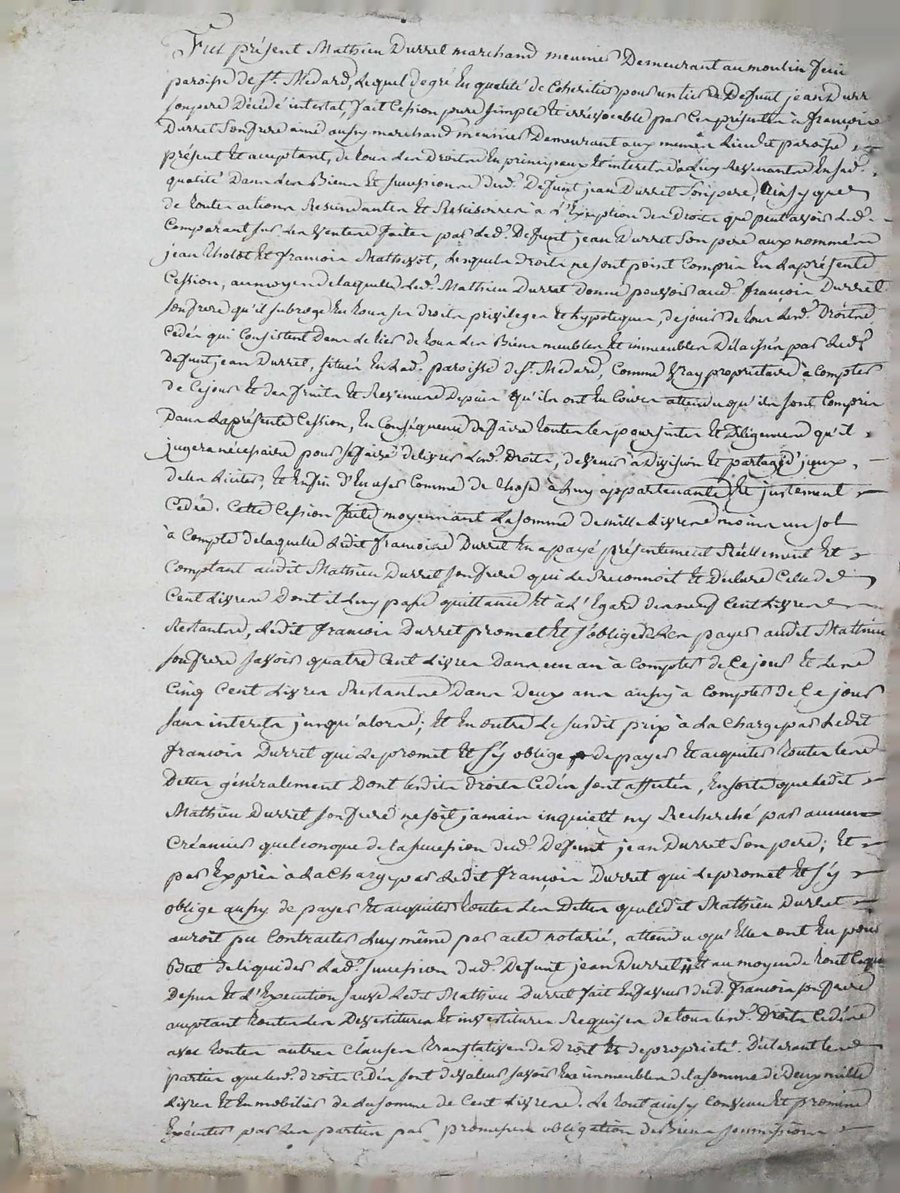 Fut présent Mathieu Durret marchand meunier Demeurant au moulin
paroisse de St. Medard, Lequel de gré En qualité de Cohéritier pour un tiers De Deffunt jean Durr
son pere Décédé intestat, fait Cession pure simple et irrévocable par Ces présentes à françois
Durret Son frere ainé aussy marchand meunier Demeurant aux mêmes Lieu et paroisse
présent Et acceptant, de tous Les Droits En principaux Et interets à Luy Revenants En sad.
qualité Dans Les Biens Et succession dud. Deffunt jean Durret Son pere, Ainsy que
de toutes actions Rescindantes Et Rescisoires à L'Exception des Droits que peut avoir Led.
Comparant sur Les ventes faites par Led. Deffunt jean Durret Son pere aux nommés
jean Et francois, Lesquels Droits ne sont point Compris En La présente
Cession, au moyen de laquelle Led. Mathieu Durret donne pouvoir aud. françois Durret
son frere qu'il subroge En tous ses droits privileges Et hypoteques, de jouir de tous Lesd. Droits
Cédés qui Consistent Dans Le tiers de tous Les Biens meubles Et immeubles Délaissés par Led.
Deffunt jean Durret, situés En Lad. paroisse de St. Medard, Comme vray propriétaire à Compter
de Ce jour Et des fruits Et Revenus Depuis qu'ils ont Eu Cours attendu qu'ils sont Compris
Dans La présente Cession, En Conséquence de faire toutes Les poursuites Et Diligences qu'il
jugera nécessaire pour se faire délivrer Lesd. Droits, de venir à Division Et partage d'iceux,
de Les Liciter, et Enfin D'En user Comme de Chose à Luy appartenante Et justement
Cédée. Cette Cession faite moyennant La somme de mille Livres moins un sol
à Compte de laquelle Ledit francois Durret En a payé présentement Réellement Et
Comptant audit Mathieu Durret son frere qui Le Reconnoit Et Déclare Celle de
Cent Livres Dont il Luy passe quittance Et à L'Egard des neuf Cent Livres
Restantes, Ledit francois Durret promet Et s'oblige de Les payer audit Mathieu
son frere savoir quatre Cent Livres Dans un an à Compter de Ce jour Et Les
Cinq Cent Livres Restantes Dans Deux ans aussy à Compter de Ce jour
sans interets jusqu'alors; Et En outre Le susdit prix à La Charge par Ledit
francois Durret qui Le promet Et s'y oblige de payer Et acquiter toutes Les
Dettes généralement Dont Lesdits droits Cédés sont affectés, En sorte que Ledit
Mathieu Durret son frere ne soit jamais inquiété ny Recherché par aucun
Créancier quelconque de la succession dud. Deffunt jean Durret Son pere; Et
par Exprès à La Charge par Ledit françois Durret qui Le promet Et s'y
oblige aussy de payer Et acquiter toutes Les Dettes que Ledit Mathieu Durret
auroit pu Contracter Luy même par acte notarié, attendu qu'Elles ont Eu pour
But de liquider Lad. succession dud. Deffunt jean Durret; Et au moyen de tout Ce que
Dessus Et L'Execution sauve Ledit Mathieu Durret fait En faveur dud. francois son frere
acceptant toutes Les Devestitures Et investitures Requises de tous Lesd. Droits Cédés
avec toutes autres Clauses translatives de Droit Et de propriété. Déclarant Les
parties que Lesd. droits Cédés sont de valeur savoir Les immeubles de la somme de Deux mille
Livres Et En mobilier de La somme de Cent Livres. Le tout ainsy Convenu Et promis
Exécuter par Les parties par promesses obligation de Biens soumissions